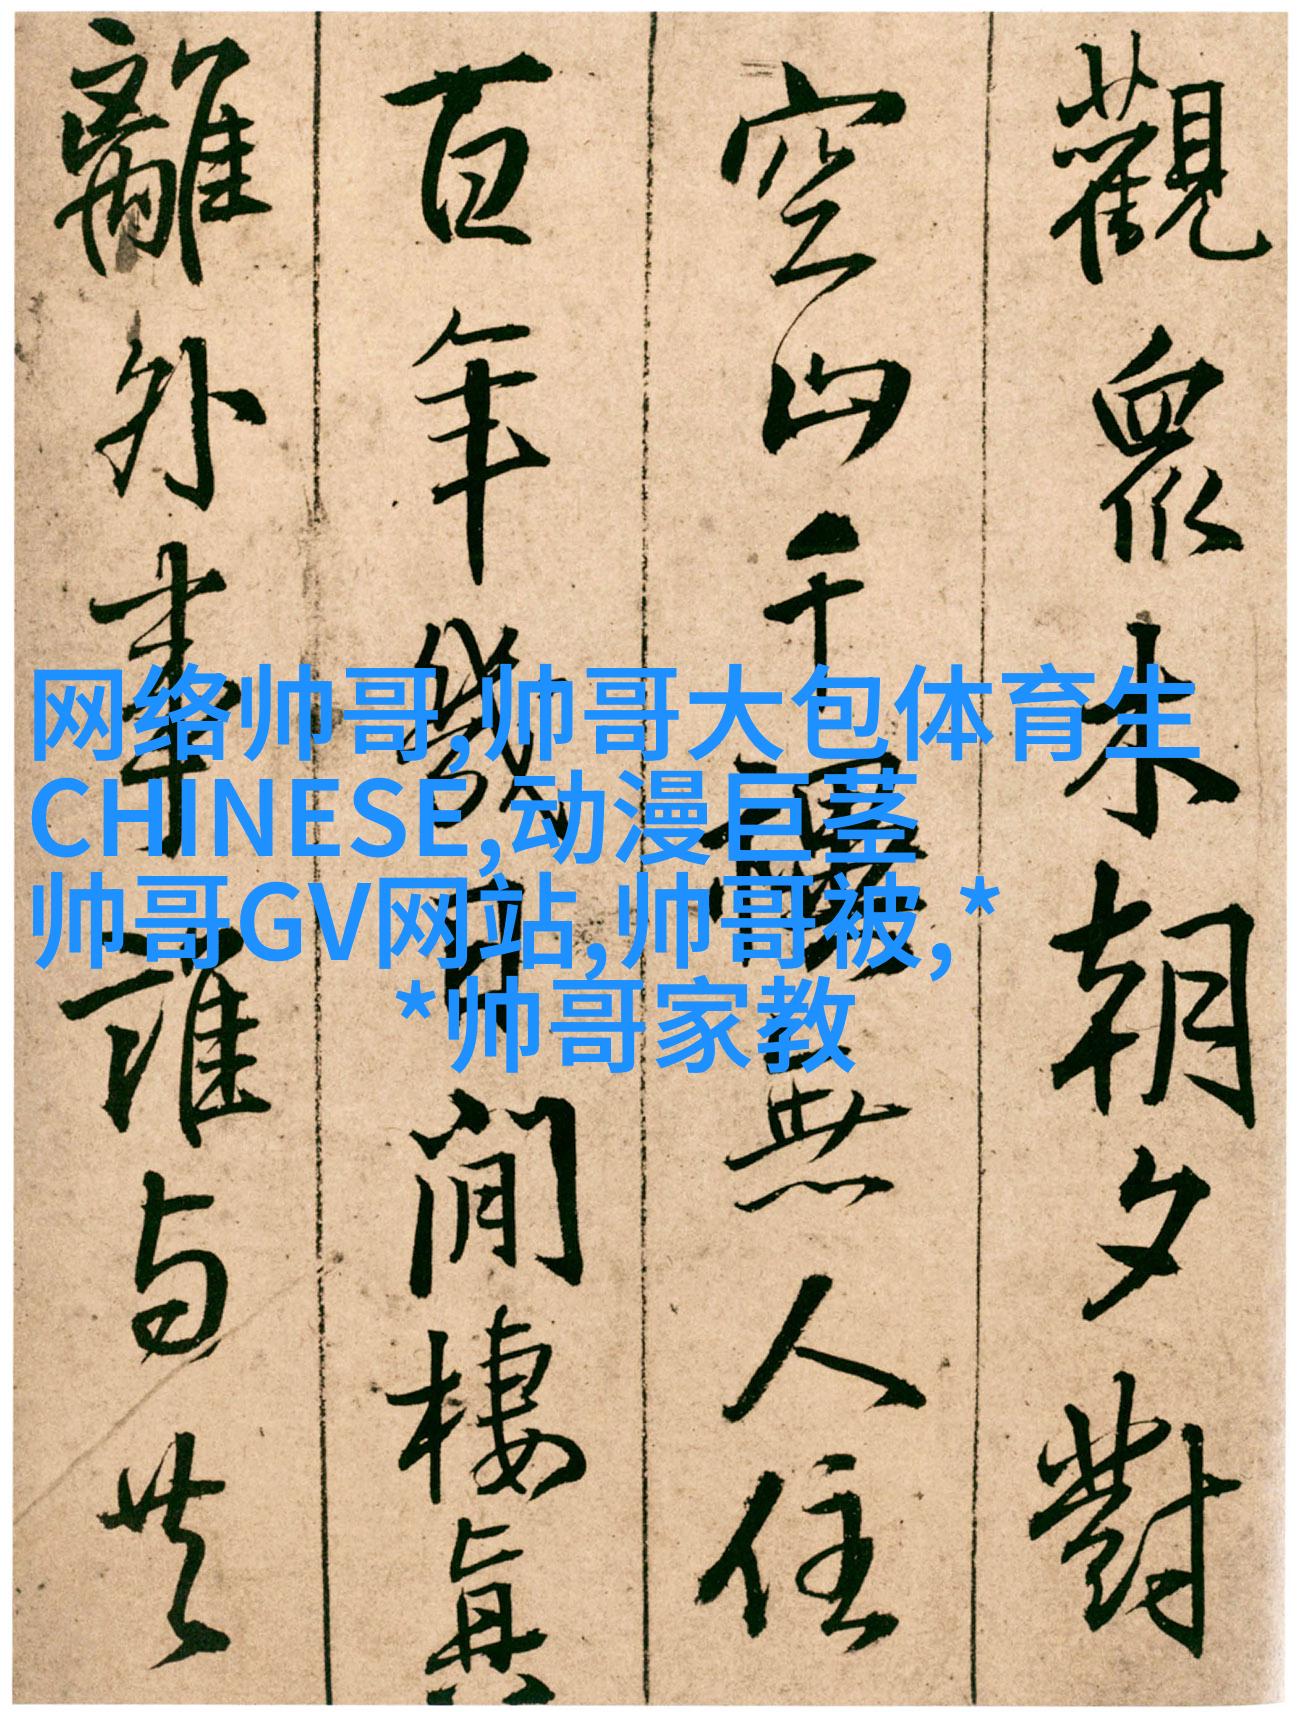 觀眾未朝夕對
空山千無人住
百年幾日閒棲真
離外事誰与共
网络帅哥,帅哥大包体育生
CHINESE,动漫巨茎
帅哥GV网站,帅哥被,*
*帅哥家教